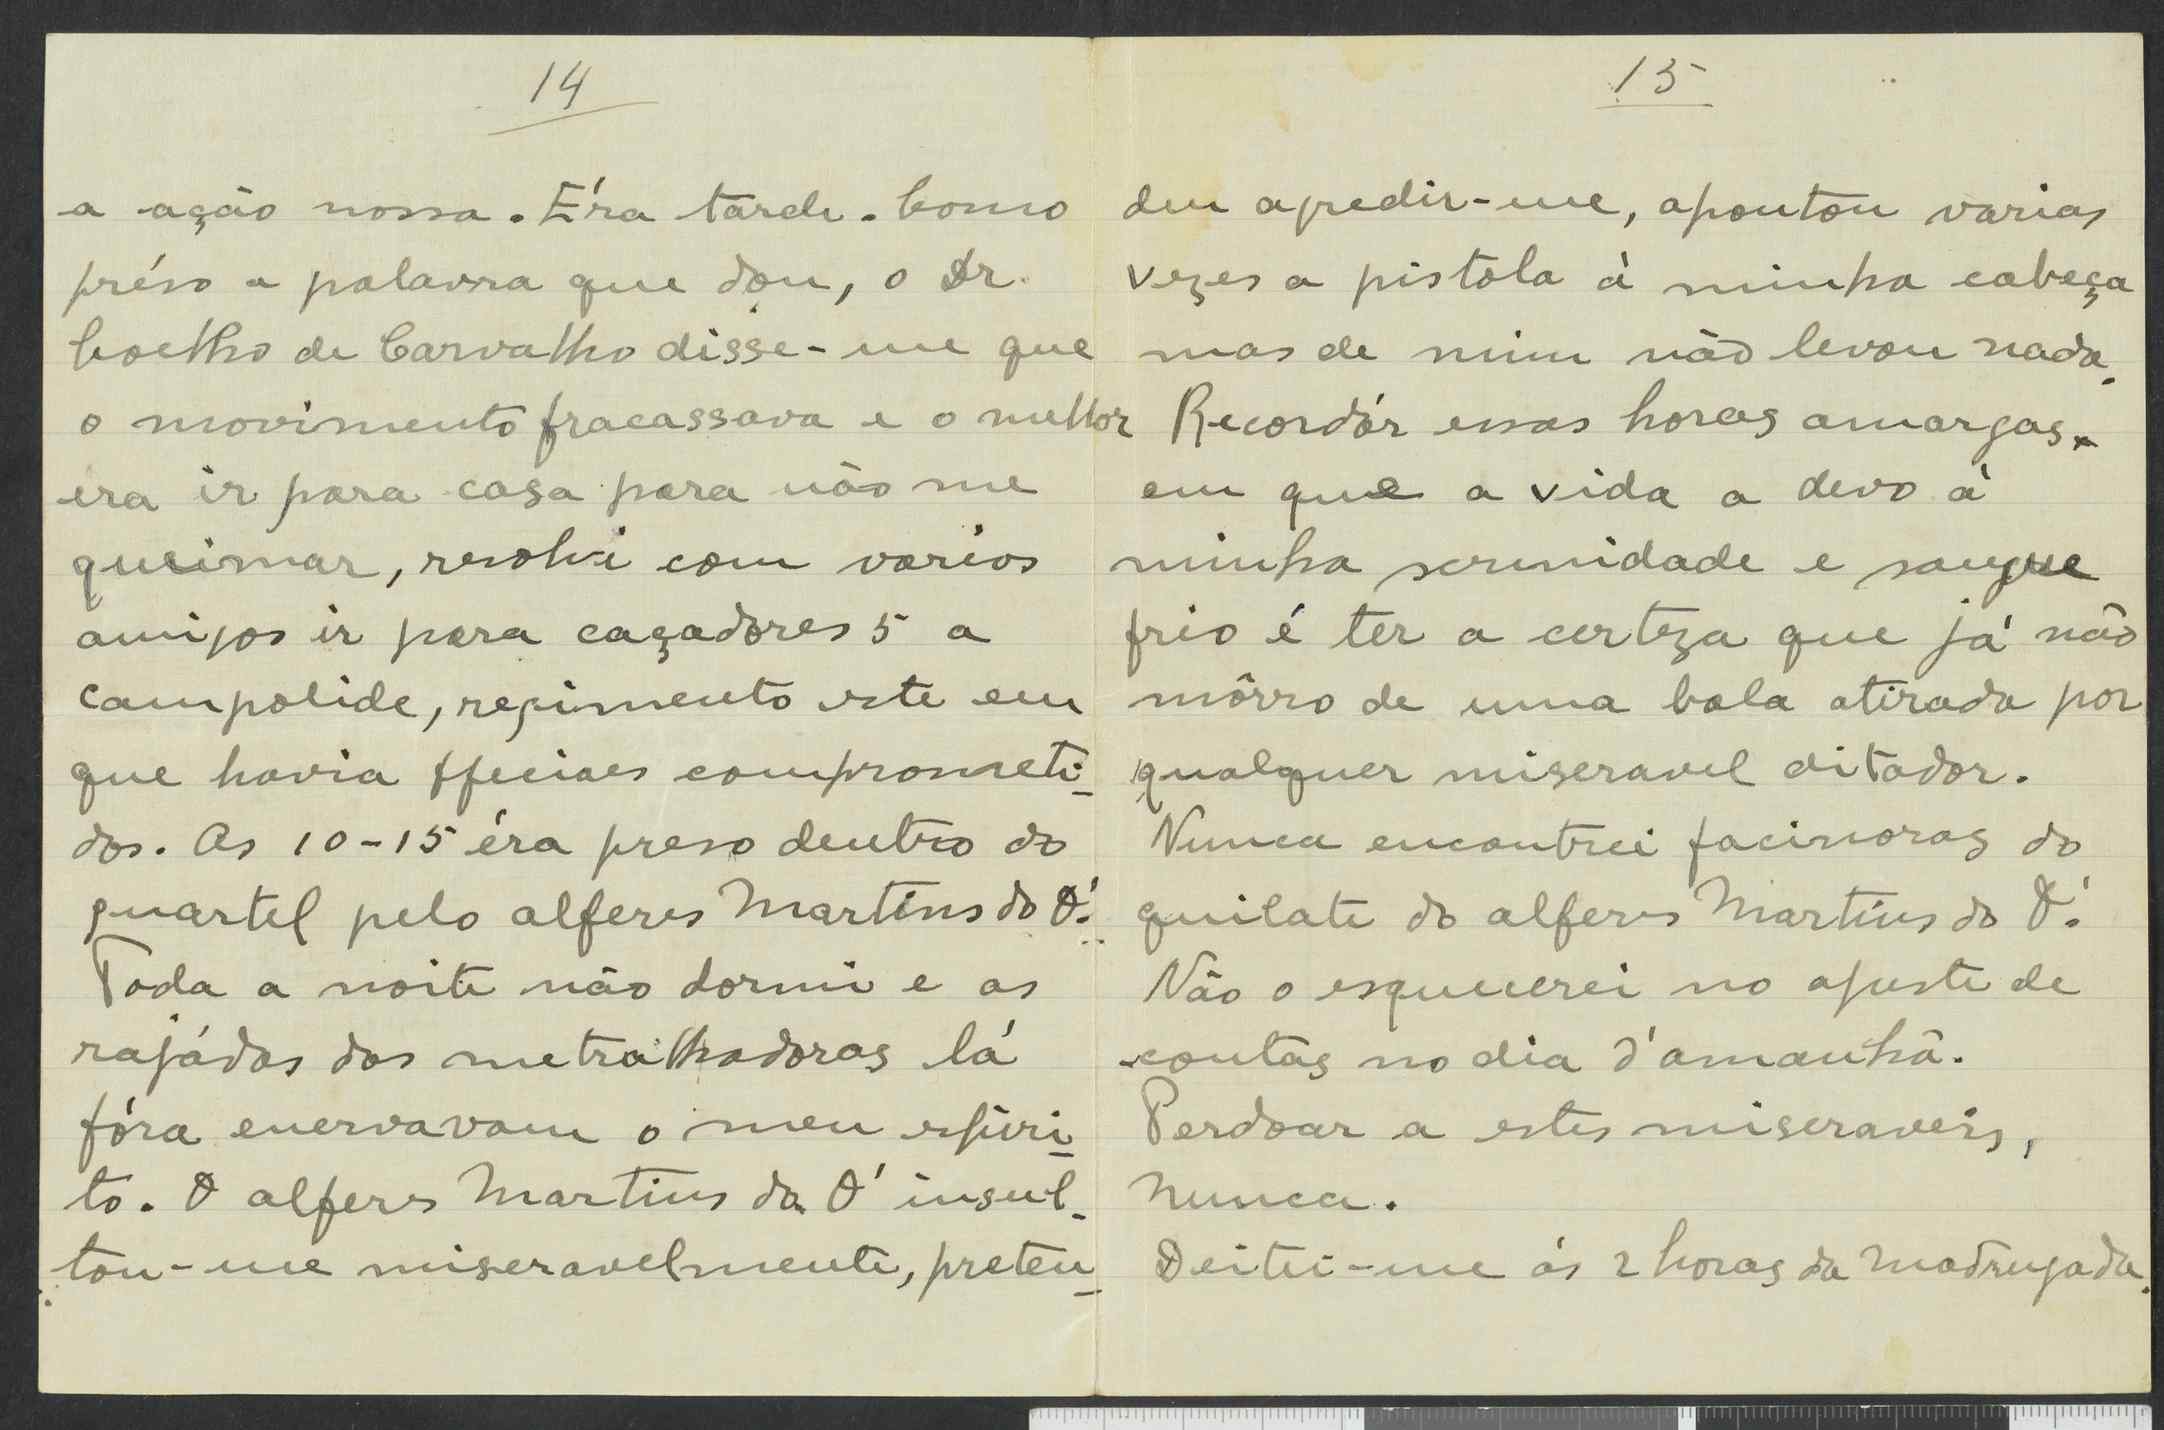 14
a ação nossa. Éra tarde. Como
préso a palavra que dou, o Dr.
Coelho de Carvalho disse-me que
o movimento fracassava e o melhor
era ir para casa para não me
queimar, resolvi com varios
amigos ir para caçadores 5 a
Campolide, regimento este em
que havia officiaes comprometi-
dos. As 10-15 éra preso dentro do
quartel pelo alferes Martins do Ó.
Toda a noite não dormi e as
rajádas das metralhadoras lá
fóra enervavam o meu espiri-
to. O alferes Martins do Ó insul-
tou-me miseravelmente, preten-
15
deu agredir-me, apontou varias
vezes a pistola à minha cabeça
mas de mim não levou nada.
Recordár essas horas amargas
em que a vida a devo á
minha serenidade e sangue
frio é ter a certeza que já não
môrro de uma bala atirada por
qualquer miseravel ditador.
Nunca encontrei facinoras do
quilate do alferes Martins do Ó.
Não o esquecerei no ajuste de
contas no dia d'amanhã.
Perdoar a estes miseraveis,
Nunca.
Deitei-me ás 2 horas da Madrugada.